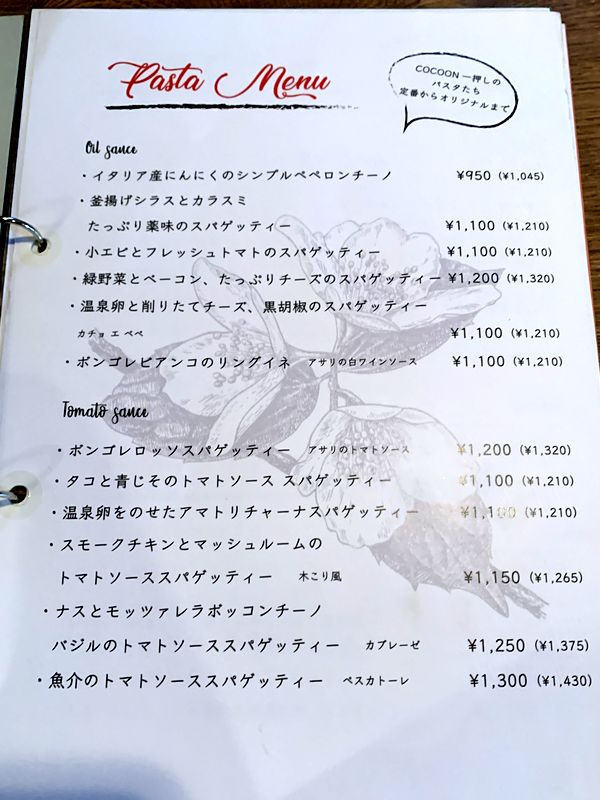 Pasta Menu
COCOON 一押しの
パスタたち
定番からオリジナルまで
Oil sauce
・イタリア産にんにくのシンプルペペロンチーノ ¥950 (¥1,045)
・釜揚げシラスとカラスミ
たっぷり薬味のスパゲッティー ¥1,100 (¥1,210)
・小エビとフレッシュトマトのスパゲッティー ¥1,100 (¥1,210)
・緑野菜とベーコン、たっぷりチーズのスパゲッティー ¥1,200 (¥1,320)
・温泉卵と削りたてチーズ、黒胡椒のスパゲッティー
カチョ エ ペペ ¥1,100 (¥1,210)
・ボンゴレビアンコのリングイネ アサリの白ワインソース ¥1,100 (¥1,210)
Tomato sauce
・ボンゴレロッソスパゲッティー アサリのトマトソース ¥1,200 (¥1,320)
・タコと青じそのトマトソース スパゲッティー ¥1,100 (¥1,210)
・温泉卵をのせたアマトリチャーナスパゲッティー ¥1,100 (¥1,210)
・スモークチキンとマッシュルームの
トマトソーススパゲッティー 木こり風 ¥1,150 (¥1,265)
・ナスとモッツァレラボッコンチーノ
バジルのトマトソーススパゲッティー カプレーゼ ¥1,250 (¥1,375)
・魚介のトマトソーススパゲッティー ペスカトーレ ¥1,300 (¥1,430)